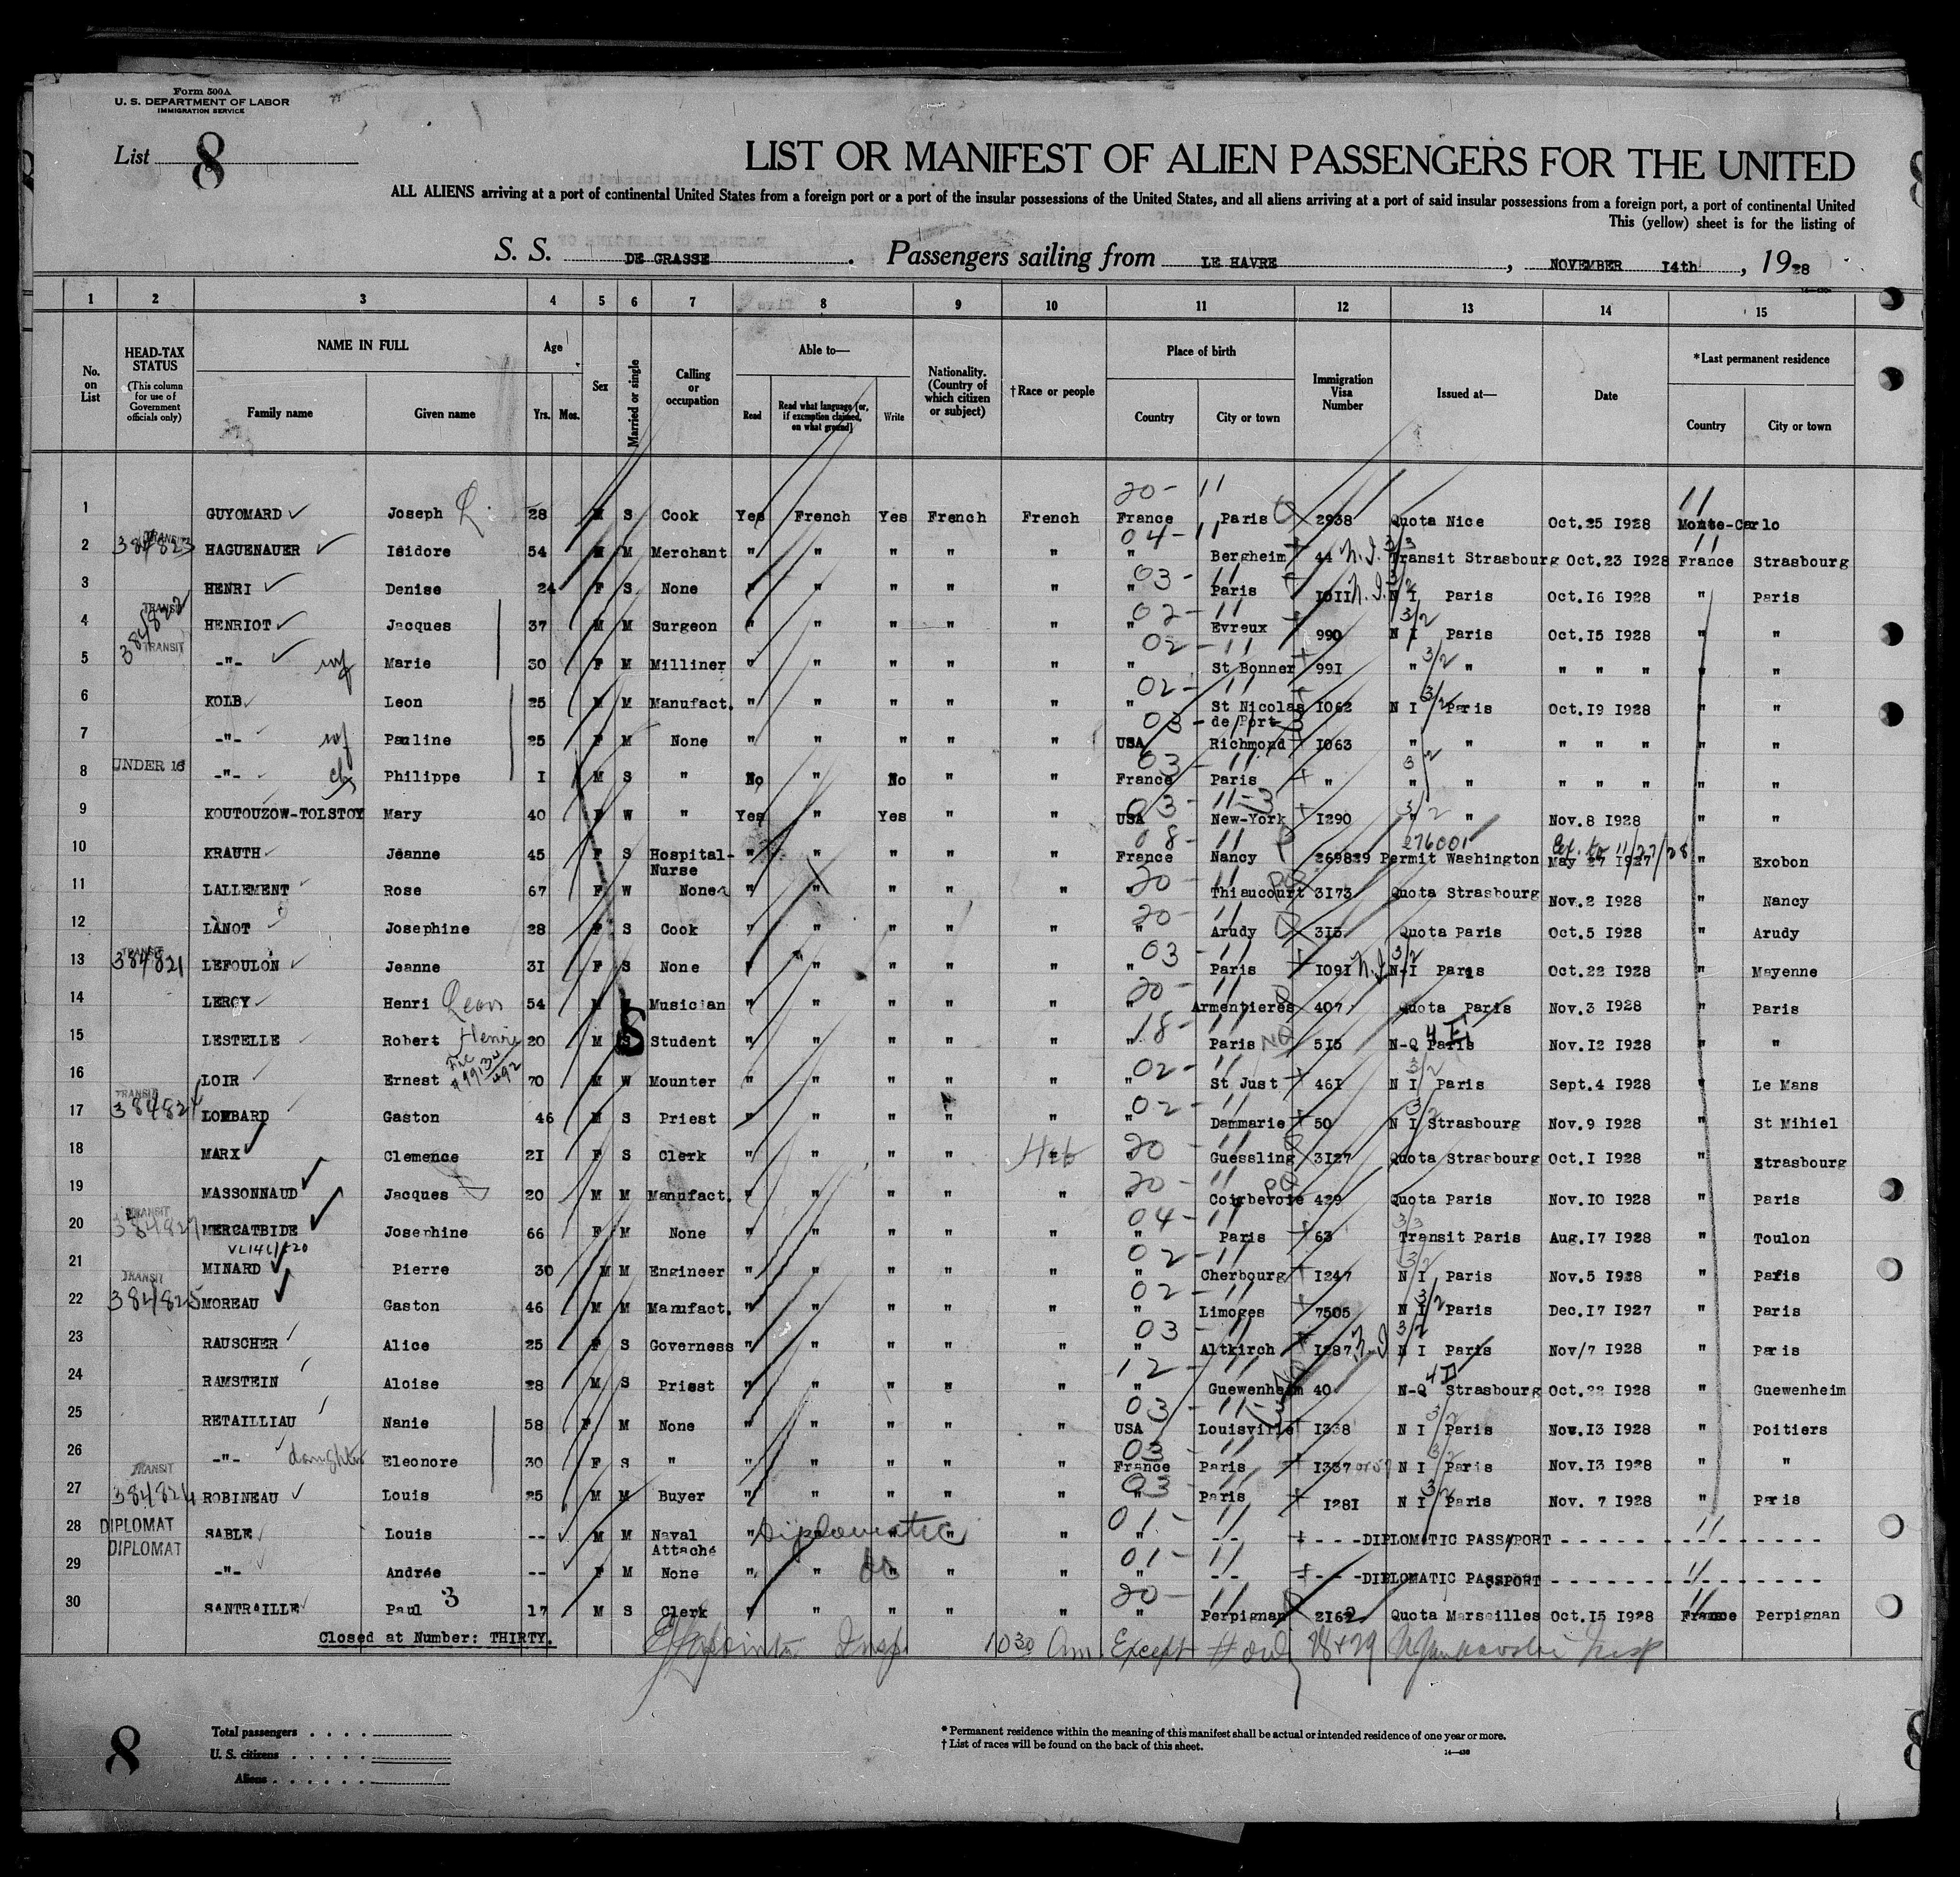 Form 500A
U. S. DEPARTMENT OF LABOR
IMMIGRATION SERVICE
List 8
LIST OR MANIFEST OF ALIEN PASSENGERS FOR THE UNITED
ALL ALIENS arriving at a port of continental United States from a foreign port or a port of the insular possessions of the United States, and all aliens arriving at a port of said insular possessions from a foreign port, a port of continental United
This (yellow) sheet is for the listing of
S. S. DE GRASSE. Passengers sailing from LE HAVRE, NOVEMBER I4th, 1928
1 2 3 4 5 6 7 8 9 10 11 12 13 14 15
No. on List
HEAD-TAX STATUS (This column for use of Government officials only)
NAME IN FULL
Family name Given name
Age
Yrs. Mos.
Sex
Married or single
Calling or occupation
Able to—
Read Read what language [or, if exemption claimed, on what ground] Write
Nationality. (Country of which citizen or subject)
†Race or people
Place of birth
Country City or town
Immigration Visa Number
Issued at—
Date
*Last permanent residence
Country City or town
20- 11 11
1 GUYOMARD Joseph 28 M S Cook Yes French Yes French French France Paris 2938 Quota Nice Oct.25 I928 Monte-Carlo
04-11 3/3 11
2 TRANSIT 384823 HAGUENAUER Isidore 54 M M Merchant " " " " " " Bergheim 44 N.I. Transit Strasbourg Oct.23 I928 France Strasbourg
03-11 3/2
3 HENRI Denise 24 F S None " " " " " " Paris I0II N.I. N I Paris Oct.I6 I928 " Paris
02-11 3/2
4 TRANSIT 384822 HENRIOT Jacques 37 M M Surgeon " " " " " " Evreux 990 N I Paris Oct.I5 I928 " "
02-11 3/2
5 TRANSIT -"- wf Marie 30 F M Milliner " " " " " " St Bonner 99I " " " " " " "
02-11 3/2
6 KOLB Leon 25 M M Manufact. " " " " " " St Nicolas de Port I062 N I Paris Oct.I9 I928 " "
03-
7 -"- wf Pauline 25 F M None " " " " " USA Richmond I063 " " " " " " "
03-11 3/2
8 UNDER 16 -"- ch Philippe I M S " No " No " " France Paris " " " " " " " "
03-11-3 3/2
9 KOUTOUZOW-TOLSTOY Mary 40 F W " Yes " Yes " " USA New-York I290 " " Nov.8 I928 " "
08-11 276001 Ex. to 11/27/28
10 KRAUTH Jeanne 45 F S Hospital-Nurse " " " " " France Nancy 269829 Permit Washington May 27 I927 " Exobon
20-11
11 LALLEMENT Rose 67 F W None " " " " " " Thiaucourt 3I73 Quota Strasbourg Nov.2 I928 " Nancy
20-11
12 LANOT Josephine 28 F S Cook " " " " " " Arudy 3I5 Quota Paris Oct.5 I928 " Arudy
03-11 3/2
13 TRANSIT 384821 LEFOULON Jeanne 3I F S None " " " " " " Paris I09I N.I. N-I Paris Oct.22 I928 " Mayenne
20-11
14 LEROY Henri Leon 54 M Musician " " " " " " Armentieres 407 Quota Paris Nov.3 I928 " Paris
18-11
15 LESTELLE Robert Henri 20 M S Student " " " " " " Paris 5I5 N-Q Paris Nov.I2 I928 " "
02-11 3/2
16 LOIR Ernest 70 M W Mounter " " " " " " St Just 46I N I Paris Sept.4 I928 " Le Mans
02-11 3/2
17 TRANSIT LOMBARD Gaston 46 M S Priest " " " " " " Dammarie 50 N I Strasbourg Nov.9 I928 " St Mihiel
20 11
18 MARX Clemence 2I F S Clerk " " " " Heb " Guessling 3I27 Quota Strasbourg Oct.I I928 " Strasbourg
20-11
19 MASSONNAUD Jacques 20 M M Manufact. " " " " " " Coirbevoie 429 Quota Paris Nov.I0 I928 " Paris
04-11 3/3
20 TRANSIT 384827 MERCATBIDE Josephine 66 F M None " " " " " " Paris 63 Transit Paris Aug.I7 I928 " Toulon
02-11 3/2
21 MINARD Pierre 30 M M Engineer " " " " " " Cherbourg I247 N I Paris Nov.5 I928 " Paris
02-11 3/2
22 TRANSIT 384825 MOREAU Gaston 46 M M Manufact. " " " " " " Limoges 7505 N I Paris Dec.I7 I927 " Paris
03-11 3/2
23 RAUSCHER Alice 25 F S Governess " " " " " " Altkirch I287 N.I. N I Paris Nov/7 I928 " Paris
12-11
24 RAMSTEIN Aloise 28 M S Priest " " " " " " Guewenheim 40 N-Q Strasbourg Oct.22 I928 " Guewenheim
03-11 3/2
25 RETAILLIAU Nanie 58 F M None " " " " " USA Louisville I338 N I Paris Nov.I3 I928 " Poitiers
03-11 3/2
26 -"- daughter Eleonore 30 F S " " " " " " France Paris I337 N I Paris Nov.I3 I928 " "
03-11 3/2
27 TRANSIT 384824 ROBINEAU Louis 25 M M Buyer " " " " " " Paris I28I N I Paris Nov. 7 I928 " Paris
01-11 11
28 DIPLOMAT SABLE Louis -- M M Naval Attaché " Diplomatic " " " -- ----DIPLOMATIC PASSPORT------
01-11 11
29 DIPLOMAT -"- Andrée -- F M None " " do " " " -- ----DIPLOMATIC PASSPORT------
20-11
30 SANTRAILLE Paul 3 I7 M S Clerk " " " " " " Perpignan 2I62 Quota Marseilles Oct.I5 I928 France Perpignan
Closed at Number: THIRTY.
Insp 1030 Am. Except 28+29 Insp
8
Total passengers
U. S. citizens
Aliens
* Permanent residence within the meaning of this manifest shall be actual or intended residence of one year or more.
† List of races will be found on the back of this sheet.
14—430